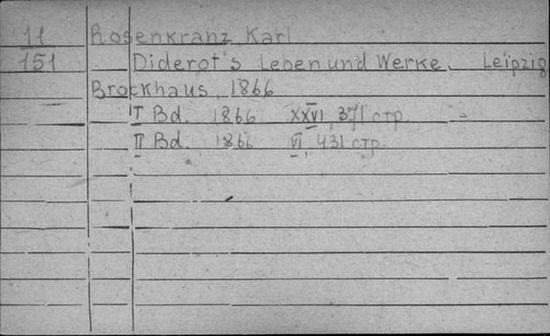 11 Rosenkranz, Karl
151 Diderot's Leben und Werke. Leipzig
Brockhaus, 1866
I Bd. 1866 XXVI, 371 стр.
II Bd. 1866 VI, 431 стр.